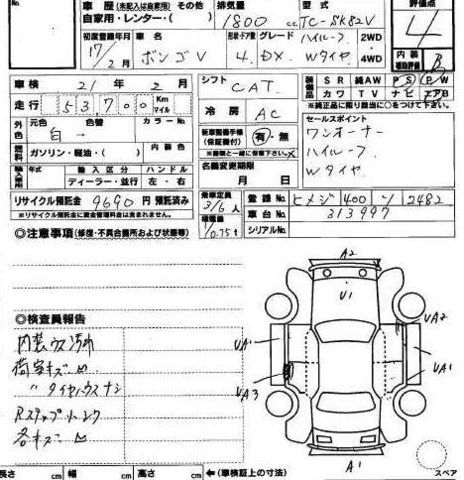 車歴(未記入は自家用) 排気量 型式 評価点
自家用・レンタ・( ) 1800 cc TC-SK82V 4
初度登録年月 車名 形状・ドア数 グレード ハイルーフ 2WD・4WD
17/2月 ボンゴV 4. DX. Wタイヤ 内装 補助評価 B
車検 21年 2月 シフト CAT.
装備品 SR 純AW PS PW
カワ TV ナビ エアB
※純正品に限り該当に○をつけて下さい。
走行 53,700 Km マイル
冷房 AC
セールスポイント
ワンオーナー
ハイルーフ
Wタイヤ
外色 元色 色替 カラーNo.
白 ー
新車整備手帳(保証書付) 有・無
※書類と一緒に保管下さい。
燃料 ガソリン・軽油・( ) 内装色
名義変更期限
月 日
輸入車 年式 輸入区分 ハンドル
ディーラー・並行 左・右
リサイクル預託金 9690円 預託済み
※リサイクル預託金に資金管理料金は含まれません。
乗車定員 3/6人
積載量 1/0.75t
登録No ヒメジ 400 ソ 2482
車台No 313997
シリアルNo
◎注意事項(修復・不具合箇所および状態等)
◎検査員報告
内装ウス汚れ
荷室キズ凹
〃 タイヤハウスナシ
Rステップ
各キズ凹
A2
U1
UA2
UA1
UA1
UA3
A1
スペア
長さ cm 幅 cm 高さ cm ←(車検証上の寸法)